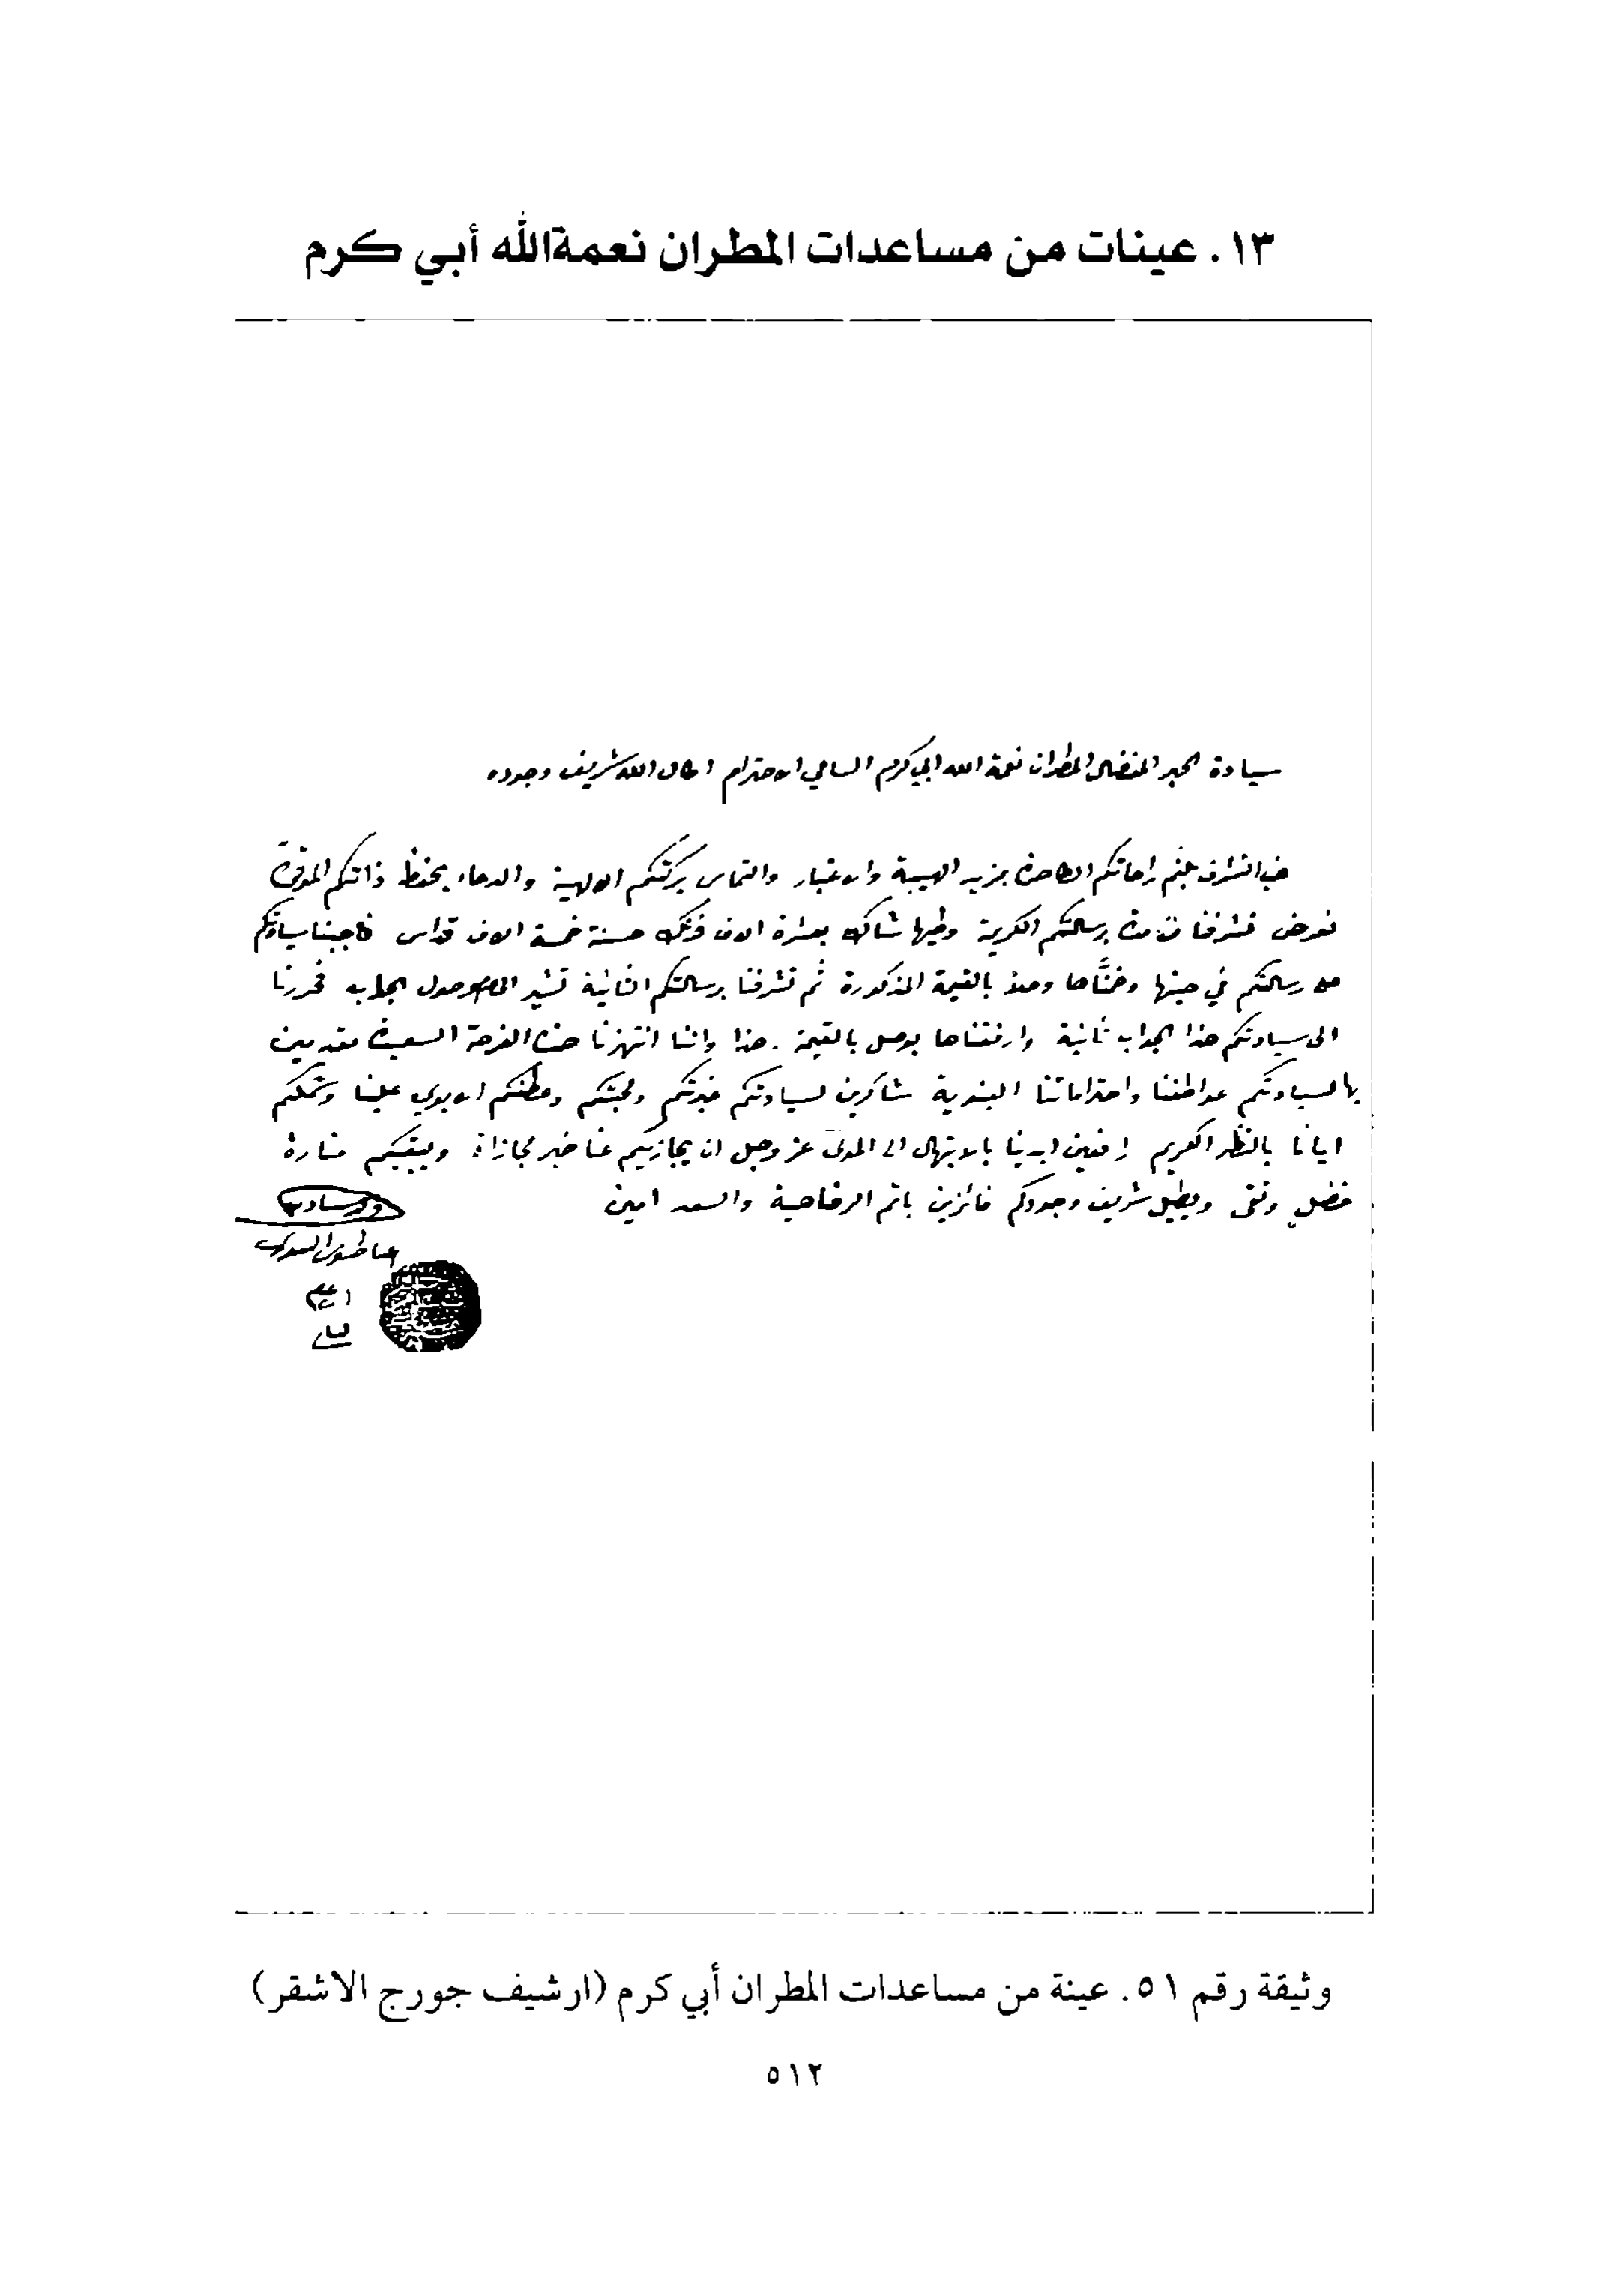 ١٣. عينات من مساعدات المطران نعمةالله أبي كرم
سيادة الحبر المفضال المطران نعمة الله ابي كرم السامي الاحترام اطال الله شريف وجوده
غب التشرف بلثم راحاتكم الطاهرة بمزيد الهيبة والاعتبار والتماس بركتكم الاولهية والدعاء بحفظ ذاتكم الموقرة
نعرض تشرفنا برسالتكم الكريمة وطيها شاك بعشرة الاف فرنك حسنة خمسة الاف قداس فاجبنا سيادتكم
عن رسالتكم في حينها وضمنّاها وصلاً بالقيمة المذكورة ثم تشرفنا برسالتكم الثانية تشير وصول الجواب فحررنا
الى سيادتكم هذا الجواب ثانية وارفقناها بوصل بالقيمة . هذا واننا انتهزنا هذه الفرصة السعيدة مقدمين
بها لسيادتكم عواطفنا واحتراماتنا البنوية شاكرين لسيادتكم غيرتكم ومحبتكم وعطفكم الابوي علينا وشملكم
ايانا بالنظر الكريم رافعين ايدينا بالابتهال الى المولى عز وجل ان يجازيكم عنا خير مجازاة ويبقيكم منارة
فضل وتقى ويطيل شريف وجودكم فائزين باتم الرفاهية والسعد امين
وثيقة رقم ٥١. عينة من مساعدات المطران أبي كرم (ارشيف جورج الاشقر)
٥١٢